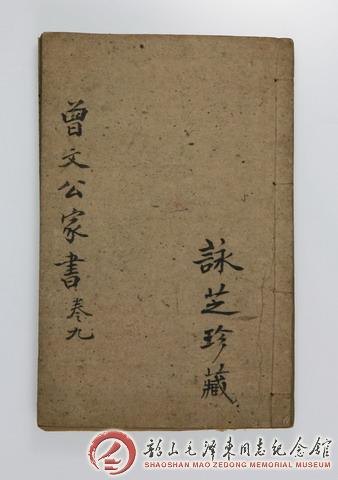 曾文公家書 卷九
詠芝珍藏
韶山毛澤東同志紀念館
SHAOSHAN MAO ZEDONG MEMORIAL MUSEUM